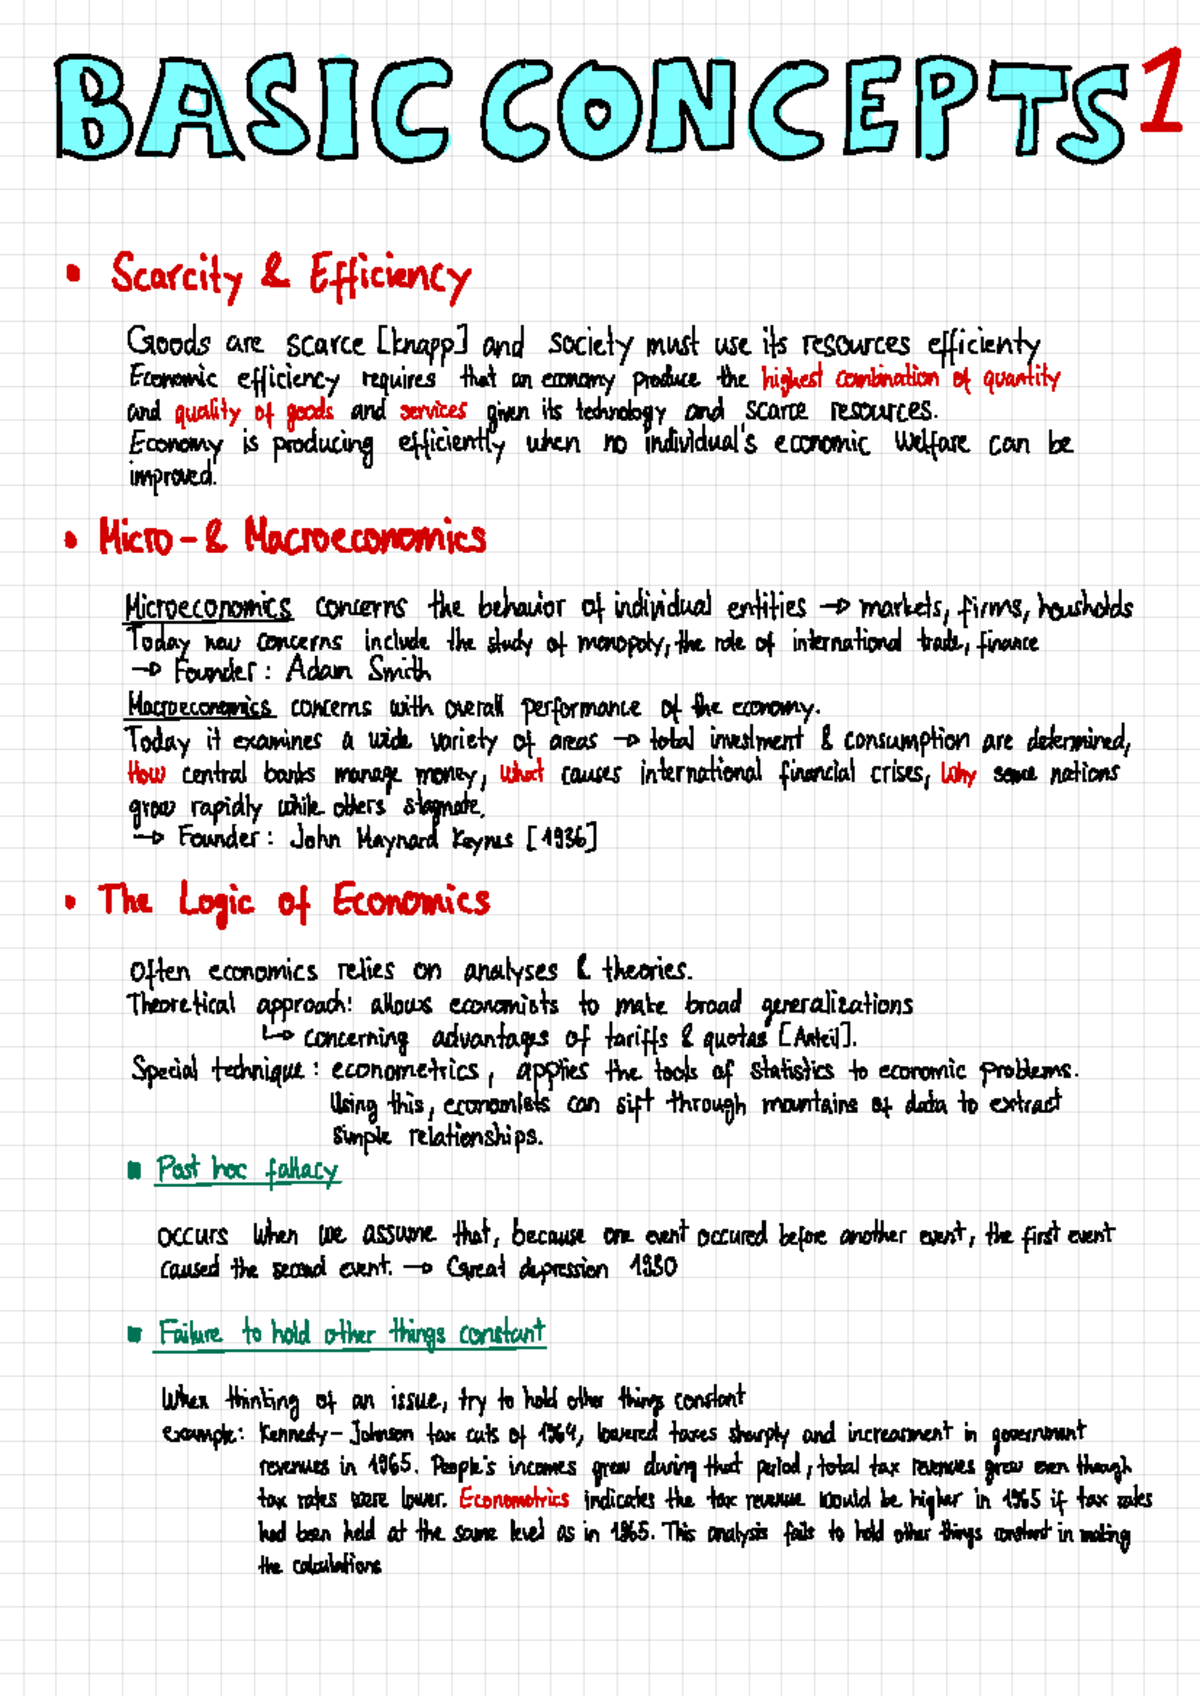 BASIC CONCEPTS 1
• Scarcity & Efficiency
Goods are scarce [knapp] and society must use its resources efficienty
Economic efficiency requires that an economy produce the highest combination of quantity
and quality of goods and services given its technology and scarce resources.
Economy is producing efficiently when no individual's economic welfare can be
improved.
• Micro- & Macroeconomics
Microeconomics concerns the behavior of individual entities → markets, firms, housholds
Today new concerns include the study of monopoly, the role of international trade, finance
→ Founder: Adam Smith
Macroeconomics concerns with overall performance of the economy.
Today it examines a wide variety of areas → total investment & consumption are determined,
How central banks manage money, what causes international financial crises, Why some nations
grow rapidly while others stagnate.
→ Founder: John Maynard Keynes [1936]
• The Logic of Economics
Often economics relies on analyses & theories.
Theoretical approach: allows economists to make broad generalizations
↳ concerning advantages of tariffs & quotas [Anteil].
Special technique: econometrics, applies the tools of statistics to economic problems.
Using this, economists can sift through mountains of data to extract
simple relationships.
▪ Post hoc fallacy
occurs when we assume that, because one event occured before another event, the first event
caused the second event. → Great depression 1930
▪ Failure to hold other things constant
When thinking of an issue, try to hold other things constant
example: Kennedy-Johnson tax cuts of 1964, lowered taxes sharply and increasment in government
revenues in 1965. People's incomes grew during that period, total tax revenues grew even though
tax rates were lower. Econometrics indicates the tax revenue would be higher in 1965 if tax rates
had been held at the same level as in 1965. This analysis fails to hold other things constant in making
the calculations